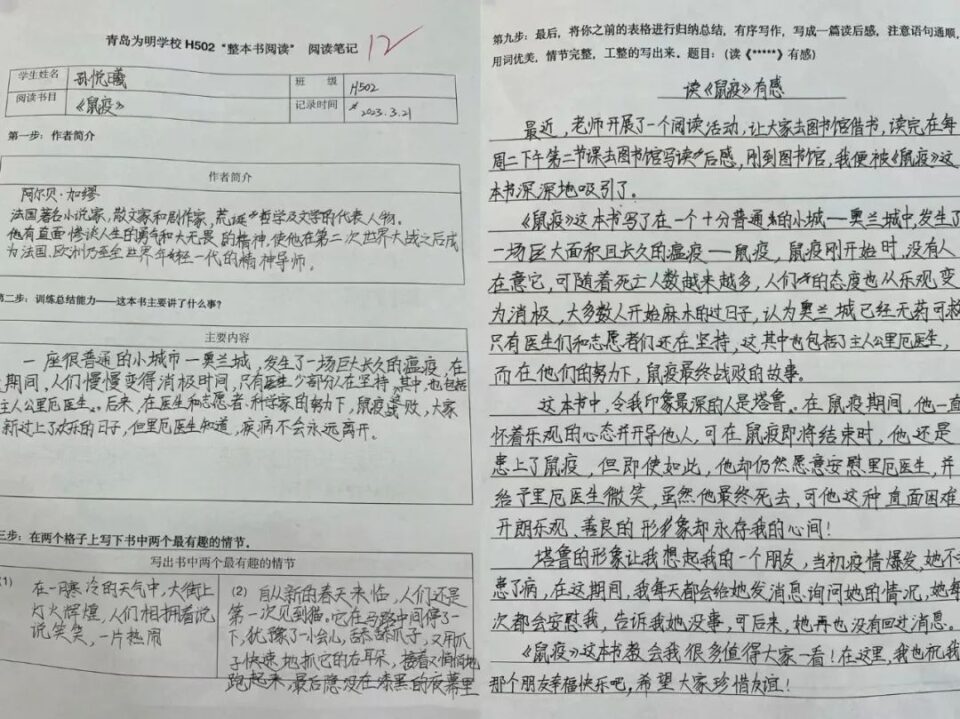 青岛为明学校 H502 "整本书阅读" 阅读笔记
12
学生姓名 孙悦曦 班 级 H502
阅读书目 《鼠疫》 记录时间 2023.3.21
第一步：作者简介
作者简介
阿尔贝·加缪
法国著名小说家，散文家和剧作家，荒诞哲学及文学的代表人物。
他有直面惨淡人生的勇气和大无畏的精神，使他在第二次世界大战之后成
为法国，欧洲乃至全世界年轻一代的精神导师。
第二步：训练总结能力——这本书主要讲了什么事？
主要内容
一座很普通的小城市一奥兰城，发生了一场巨大长久的瘟疫，在
期间，人们慢慢变得消极时间，只有医生少部分人在坚持，其中，也包括
主人公里厄医生。后来，在医生和志愿者、科学家的努力下，鼠疫战败，大家
新过上了欢乐的日子，但里厄医生知道，疾病不会永远离开。
三步：在两个格子上写下书中两个最有趣的情节。
写出书中两个最有趣的情节
(1) 在一月寒冷的天气中，大街上
灯火辉煌，人们相拥着说
说笑笑，一片热闹
(2) 自从新的春天来临，人们还是
第一次见到猫。它在马路中间停了一
下，犹豫了一小会儿，舔舔爪子，又用爪
子快速地抓它的右耳朵，接着又悄悄地
跑起来，最后隐没在漆黑的夜幕里
第九步：最后，将你之前的表格进行归纳总结，有序写作，写成一篇读后感，注意语句通顺，
用词优美，情节完整，工整的写出来。题目：(读《*****》有感)
读《鼠疫》有感
最近，老师开展了一个阅读活动，让大家去图书馆借书，读完在每
周二下午第二节课去图书馆写读后感，刚到图书馆，我便被《鼠疫》这
本书深深地吸引了。
《鼠疫》这本书写了在一个十分普通的小城一奥兰城中，发生了
一场巨大面积且长久的瘟疫——鼠疫，鼠疫刚开始时，没有人
在意它，可随着死亡人数越来越多，人们的态度也从乐观变
为消极，大多数人开始麻木的过日子，认为奥兰城已经无药可救
只有医生们和志愿者们还在坚持，这其中也包括了主人公里厄医生，
而在他们的努力下，鼠疫最终战败的故事。
这本书中，令我印象最深的人是塔鲁。在鼠疫期间，他一直
怀着乐观的心态并开导他人，可在鼠疫即将结束时，他还是
患上了鼠疫，但即使如此，他却仍然愿意安慰里厄医生，并
给予里厄医生微笑，虽然他最终死去，可他这种直面困难
开朗乐观、善良的形象却永存我的心间！
塔鲁的形象让我想起我的一个朋友，当初疫情爆发，她不
患了病，在这期间，我每天都会给她发消息询问她的情况，她每
次都会安慰我，告诉我她没事，可后来，她再也没有回过消息。
《鼠疫》这本书教会我很多值得大家一看！在这里，我也祝我
那个朋友幸福快乐吧，希望大家珍惜友谊！